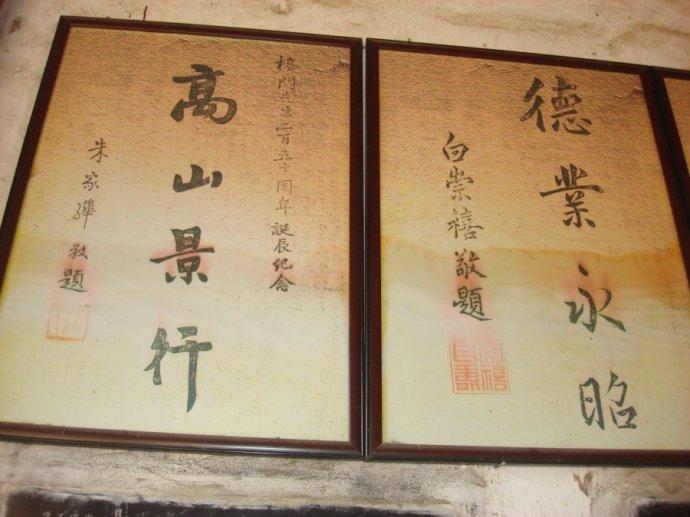 榕門先生二百五十周年誕辰紀念
高山景行
朱家驊敬題
德業永昭
白崇禧敬題